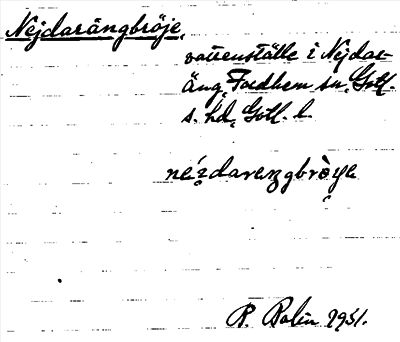 Nejdarängbröje,
vattenställe i Nejdar-
äng, Fardhem sn, Gotl.
s. hd, Gotl. l.
R. Bolin 1931.